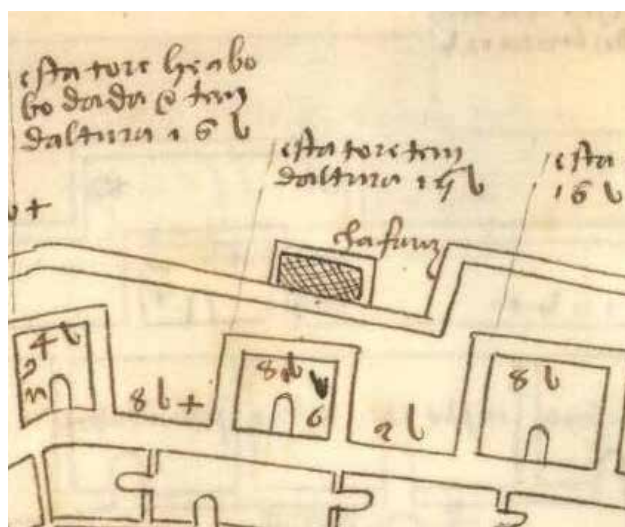 esta tore he abo
bo dada e tem
daltura 16 b
esta tore tem
daltura 15 b
esta
16 b
b +
chafariz
4 b
2
8 b +
8 b
6
2 b
8 b